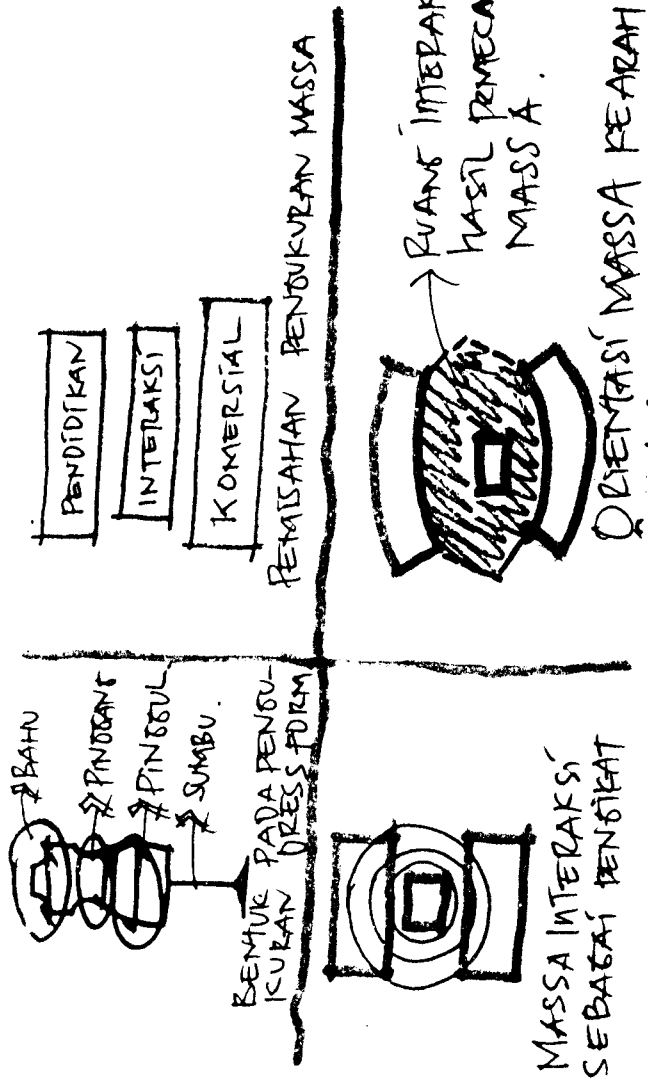 BAHU
PINGGANG
PINGGUL
SUMBU.
BENTUK PADA PENGU-
KURAN DRESS FORM
PENDIDIKAN
INTERAKSI
KOMERSIAL
PEMISAHAN PENGUKURAN MASSA
MASSA INTERAKSI
SEBAGAI PENGIKAT
RUANG INTERAK
HASIL PEMECA
MASSA.
ORIENTASI MASSA KEARAH